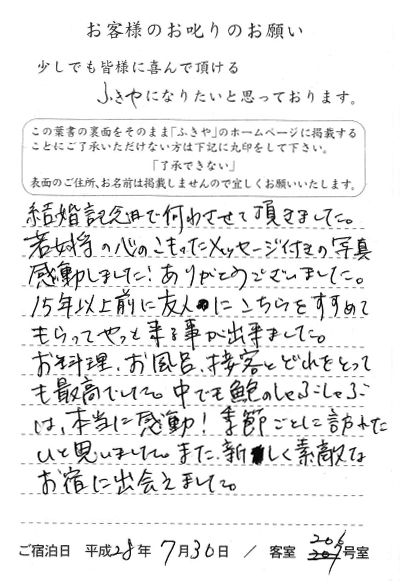 お客様のお叱りのお願い
少しでも皆様に喜んで頂ける
ふきやになりたいと思っております。
この葉書の裏面をそのまま「ふきや」のホームページに掲載する
ことにご了承いただけない方は下記に丸印をして下さい。
「了承できない」
表面のご住所、お名前は掲載しませんので宜しくお願いいたします。
結婚記念日で伺わさせて頂きました。
若女将の心のこもったメッセージ付きの写真
感動しました!ありがとうございました。
15年以上前に友人にこちらをすすめて
もらってやっと来る事が出来ました。
お料理、お風呂、接客とどれをとって
も最高でした。中でも鮑のしゃぶしゃぶ
は、本当に感動!季節ごとに訪れた
いと思いました。また、新しく素敵な
お宿に出会えました。
ご宿泊日 平成28年 7月30日 / 客室 206号室